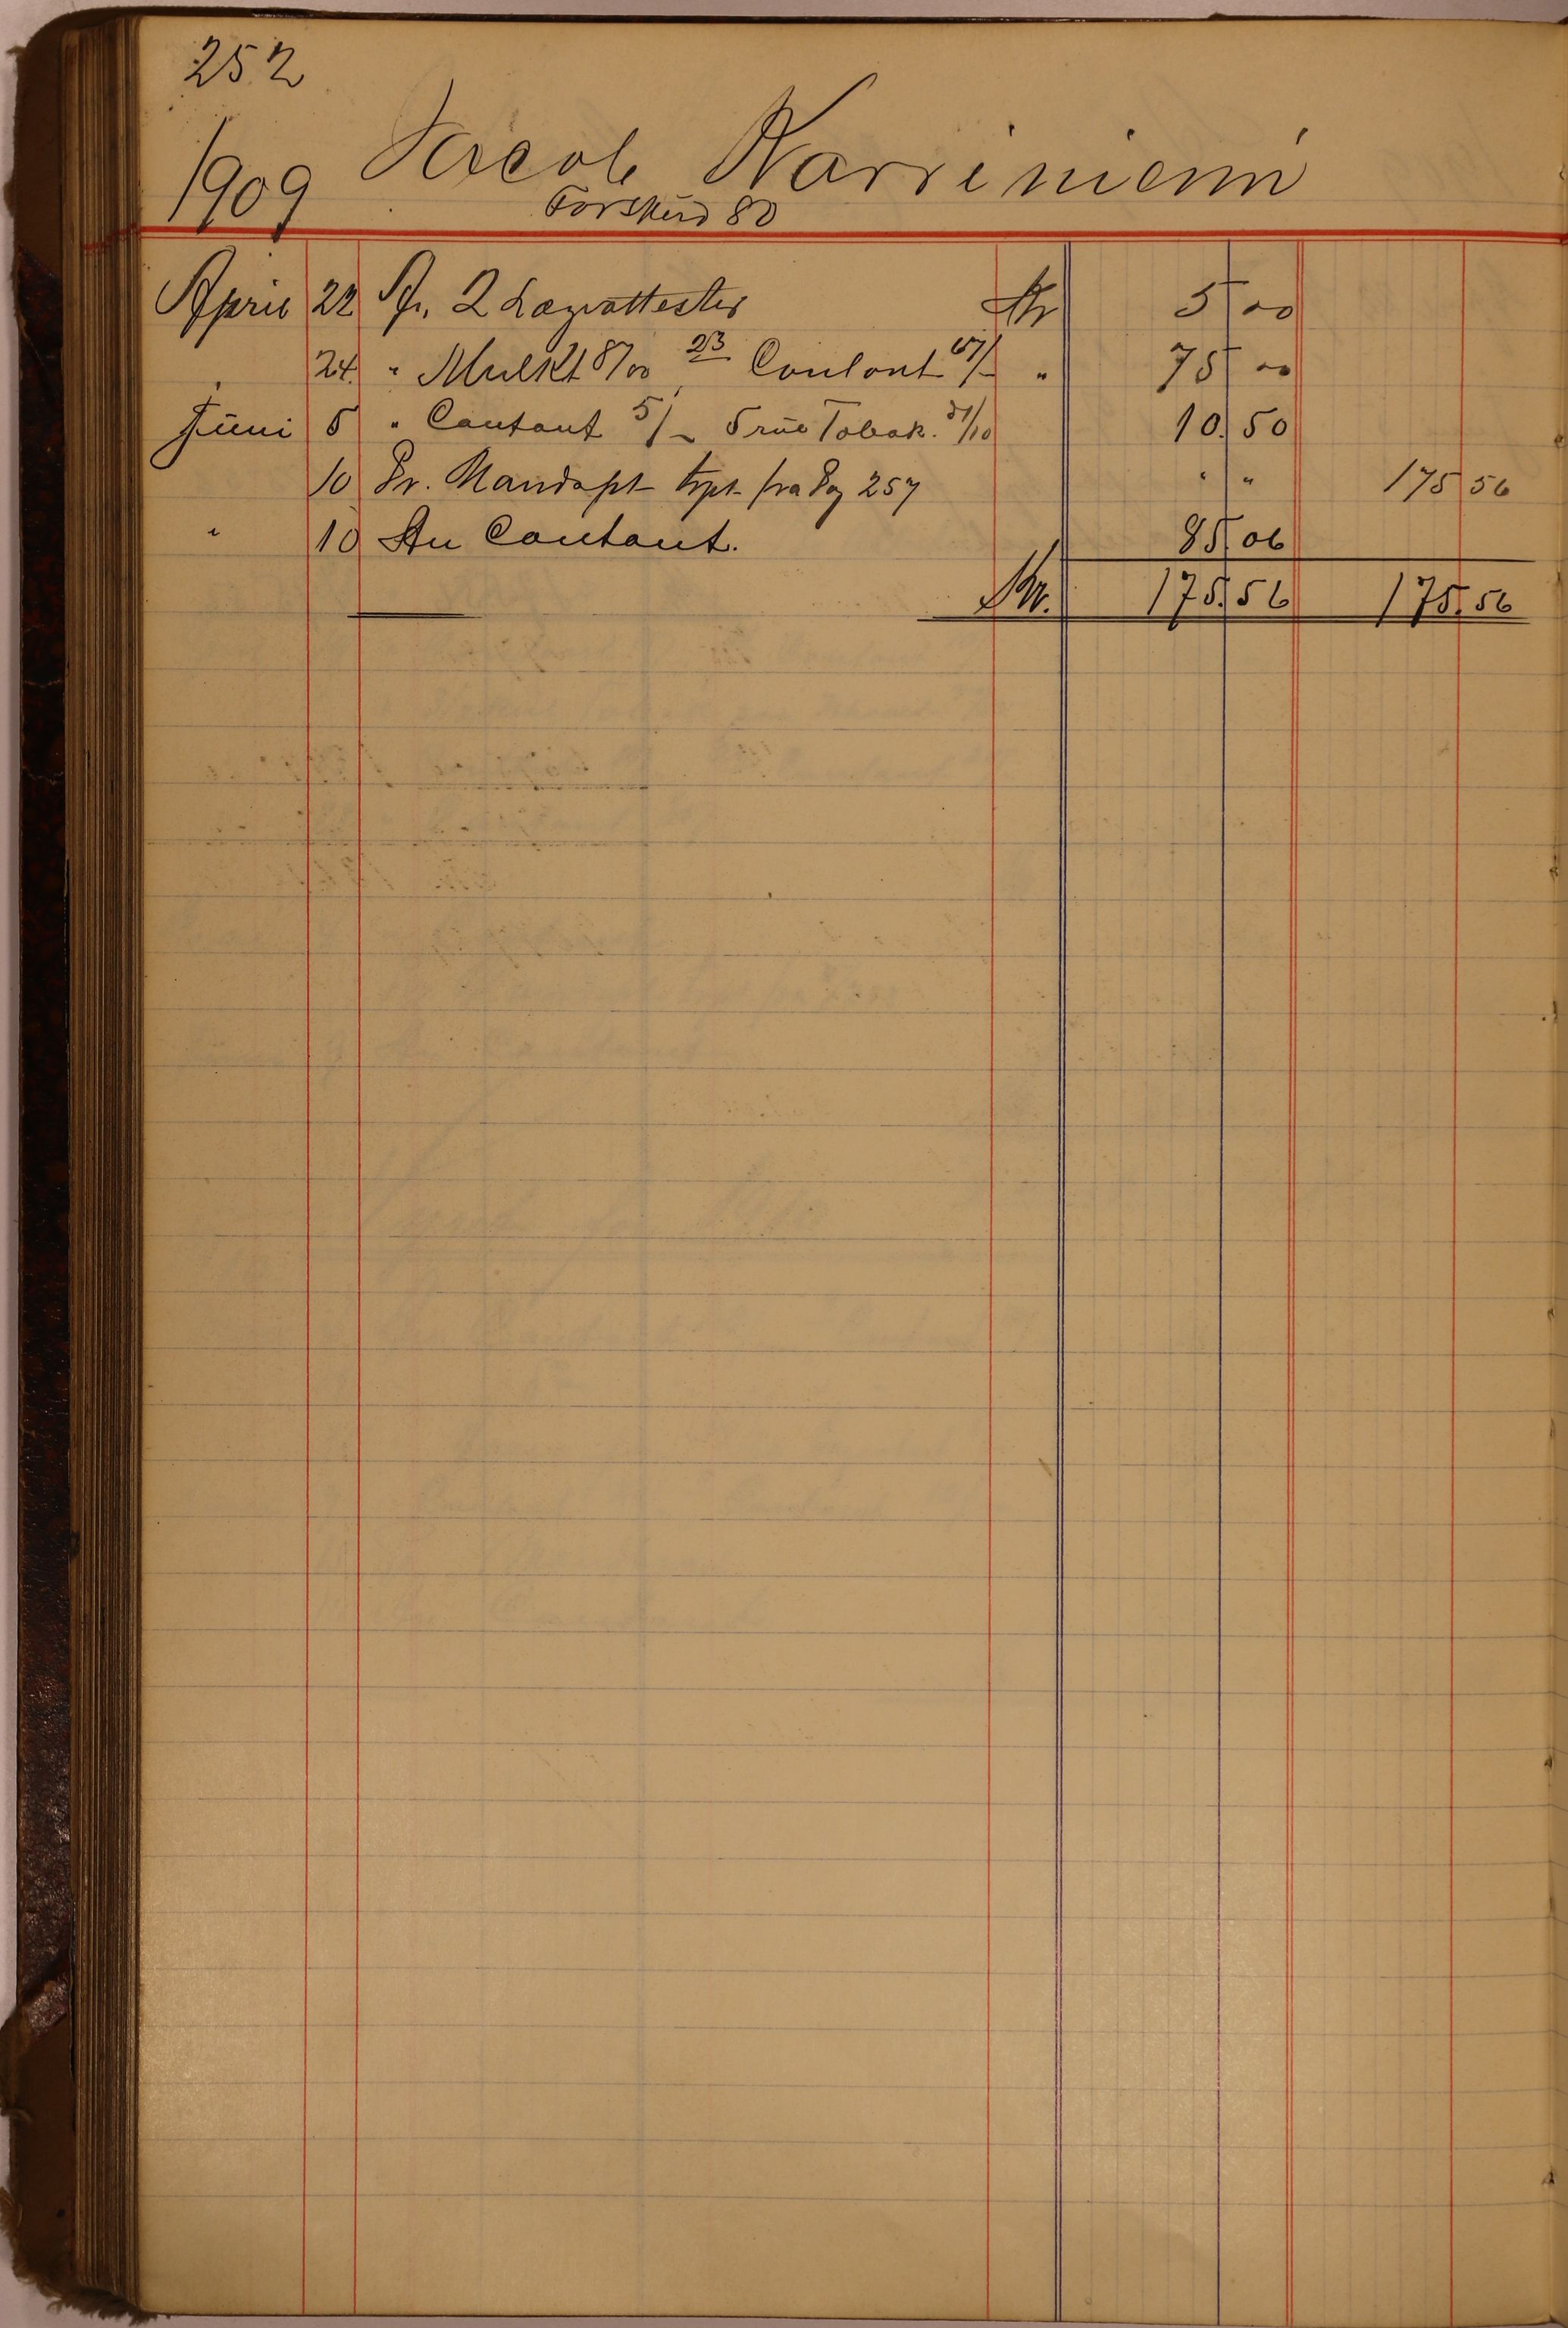 252
1909 Jacob Karriniemi
Forskud 80
April 22 Pr. 2 Lægeattester Kr 5 00
24. " Mulkt 8/00 23 Contant 67/- " 75 00
Juni 5 " Contant 5/- 5 rul Tobak. 5/10 10. 50
10 Pr. Mandskpt trpt fra Pag 257 " " 175 56
" 10 An Contant. 85. 06
Kr. 175. 56 175. 56